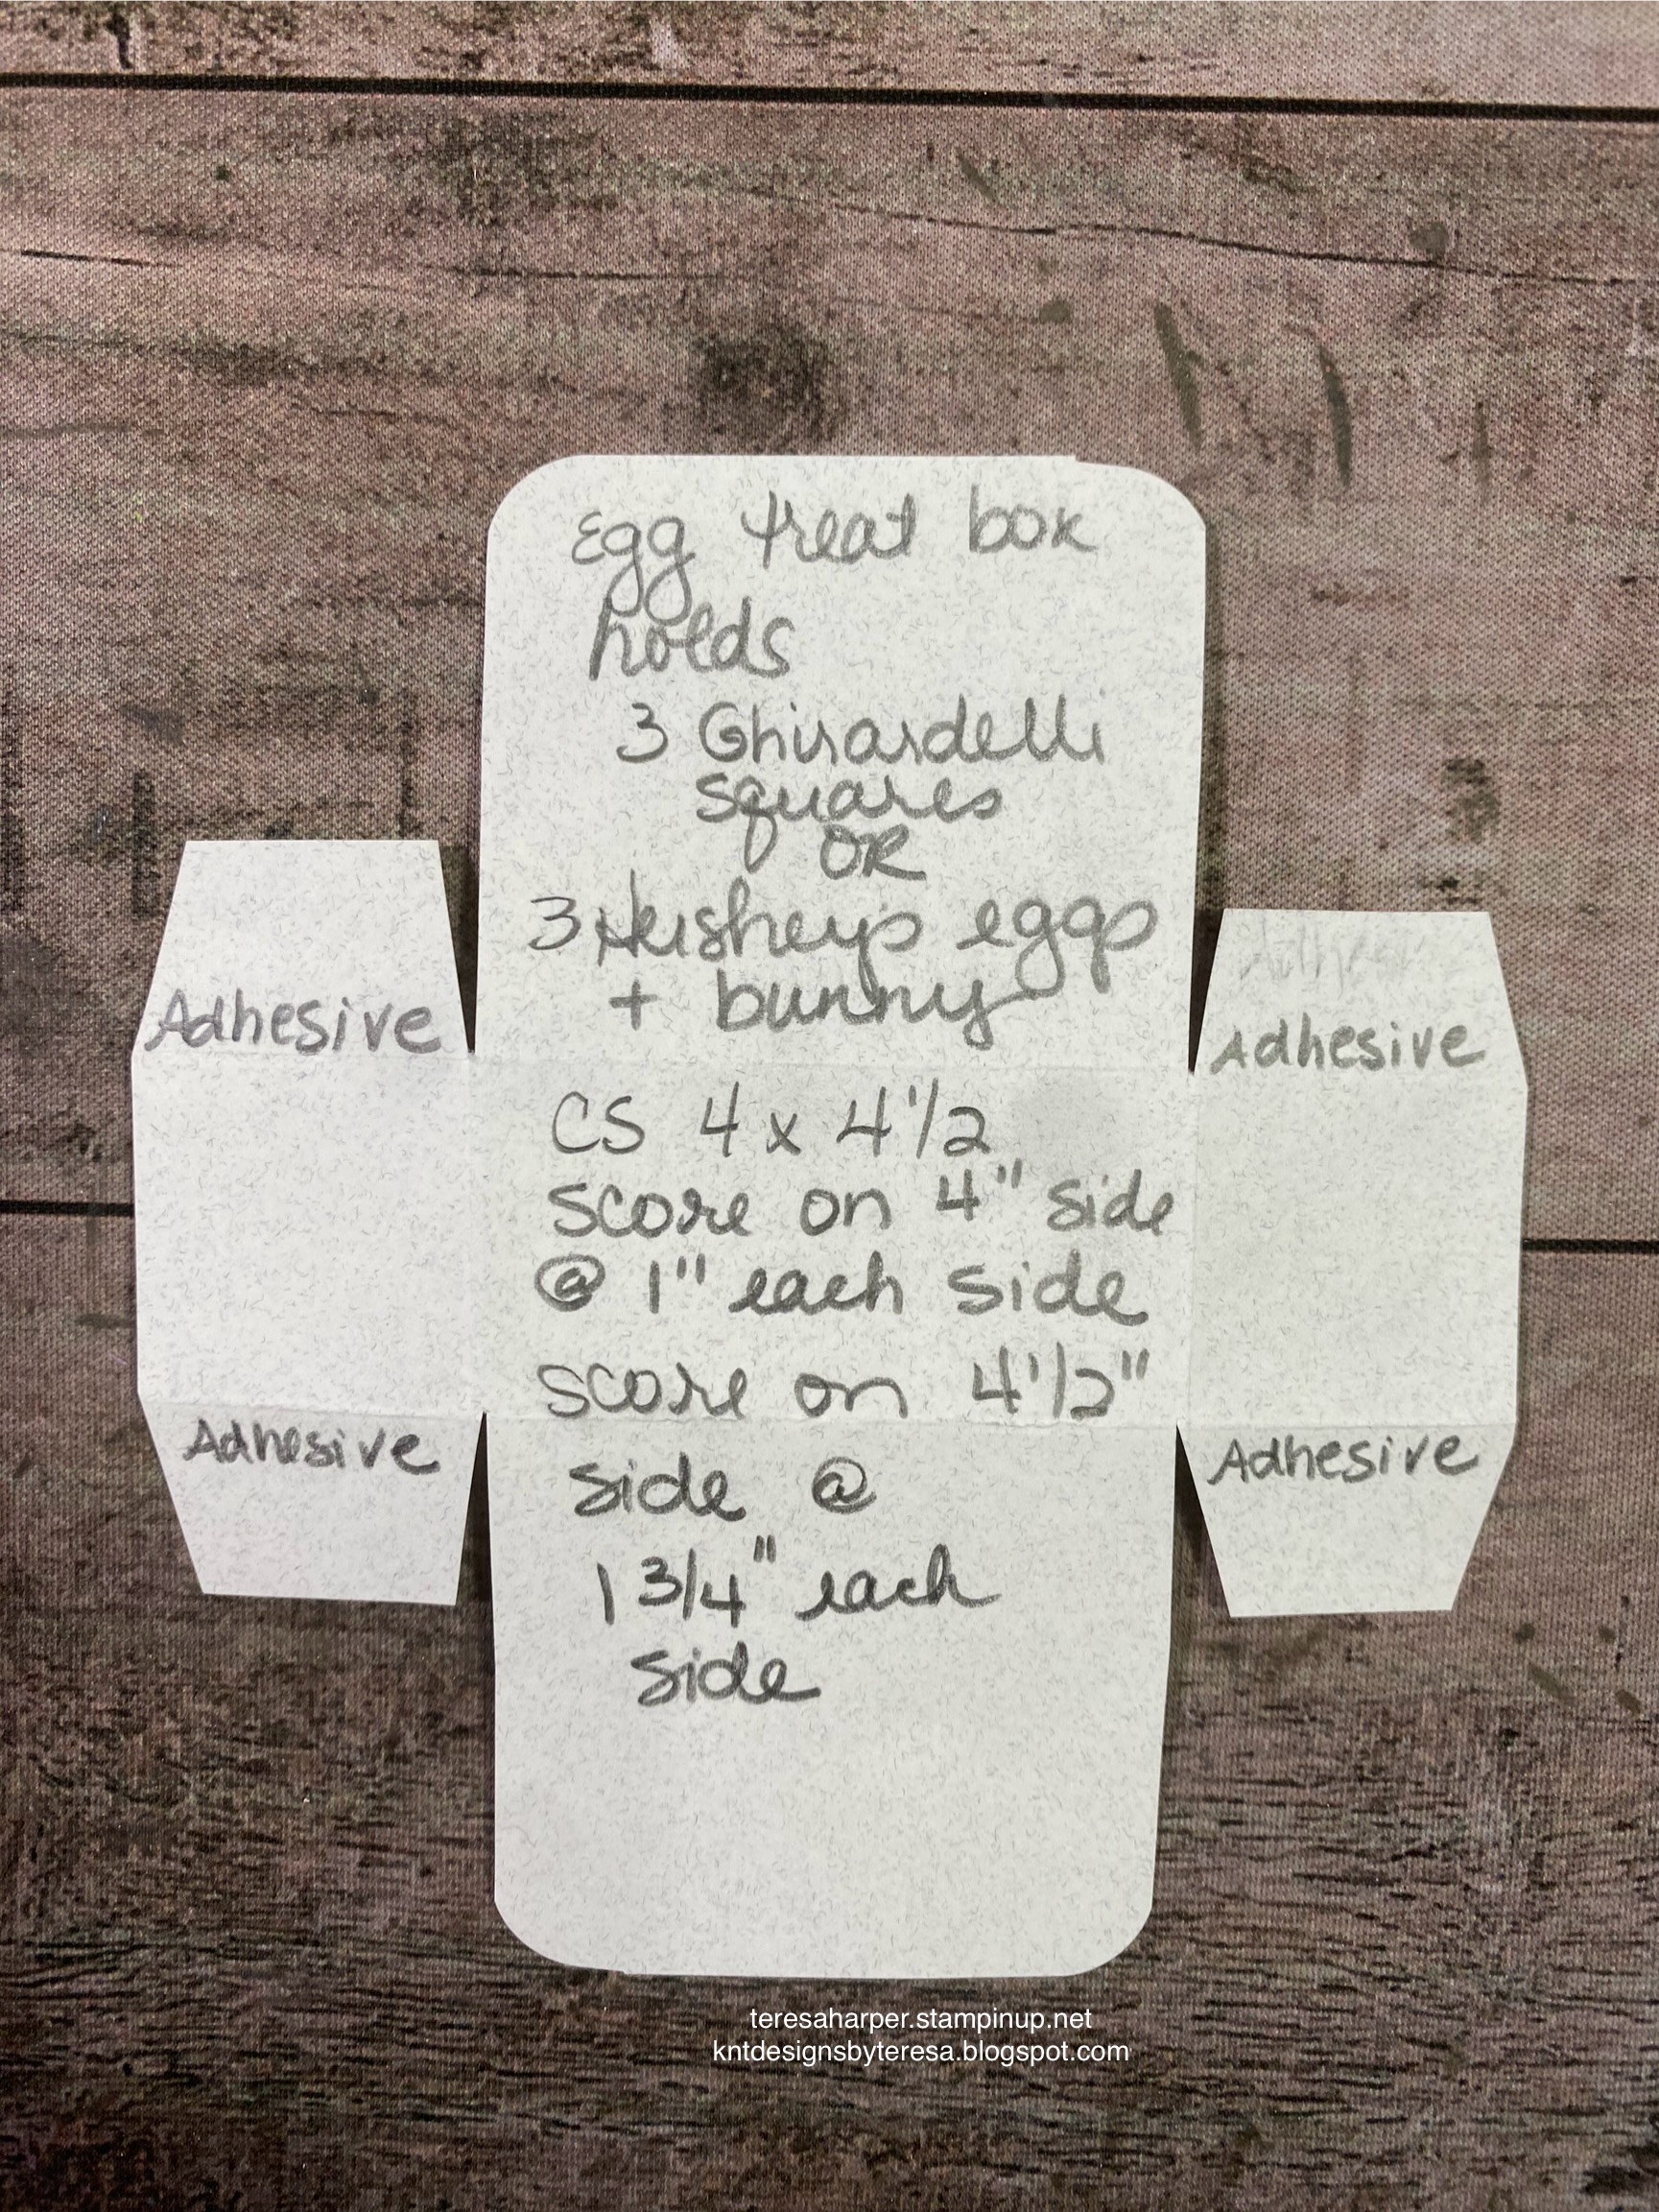 Egg treat box
holds
3 Ghirardelli
squares
OR
3 Hersheys eggs
+ bunny
Adhesive
Adhesive
CS 4 x 4 1/2
score on 4" side
@ 1" each side
score on 4 1/2"
side @
1 3/4" each
side
Adhesive
Adhesive
teresaharper.stampinup.net
kntdesignsbyteresa.blogspot.com